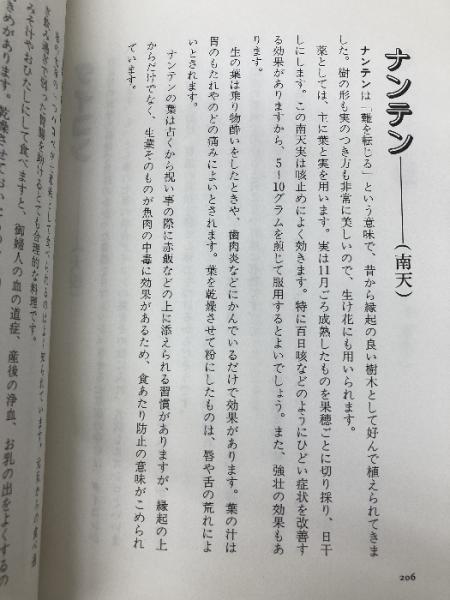 ナンテン――(南天)
ナンテンは「難を転じる」という意味で、昔から縁起の良い樹木として好んで植えられてきま
した。樹の形も実のつき方も非常に美しいので、生け花にも用いられます。
薬としては、主に葉と実を用います。実は11月ごろ成熟したものを果穂ごとに切り採り、日干
しにします。この南天実は咳止めによく効きます。特に百日咳などのようにひどい症状を改善す
る効果がありますから、5〜10グラムを煎じて服用するとよいでしょう。また、強壮の効果もあ
ります。
生の葉は乗り物酔いをしたときや、歯肉炎などにかんでいるだけで効果があります。葉の汁は
胃のもたれやのどの痛みによいとされます。葉を乾燥させて粉にしたものは、唇や舌の荒れによ
いとされます。
ナンテンの葉は古くから祝い事の際に赤飯などの上に添えられる習慣がありますが、縁起の上
からだけでなく、生葉そのものが魚肉の中毒に効果があるため、食あたり防止の意味がこめられ
ています。
206
胃腸を助けるとても合理的な料理です。
みそ汁やおひたしにして食べますと、御婦人の血の道症、産後の浄血、お乳の出をよくするの
きめがあります。乾燥させて